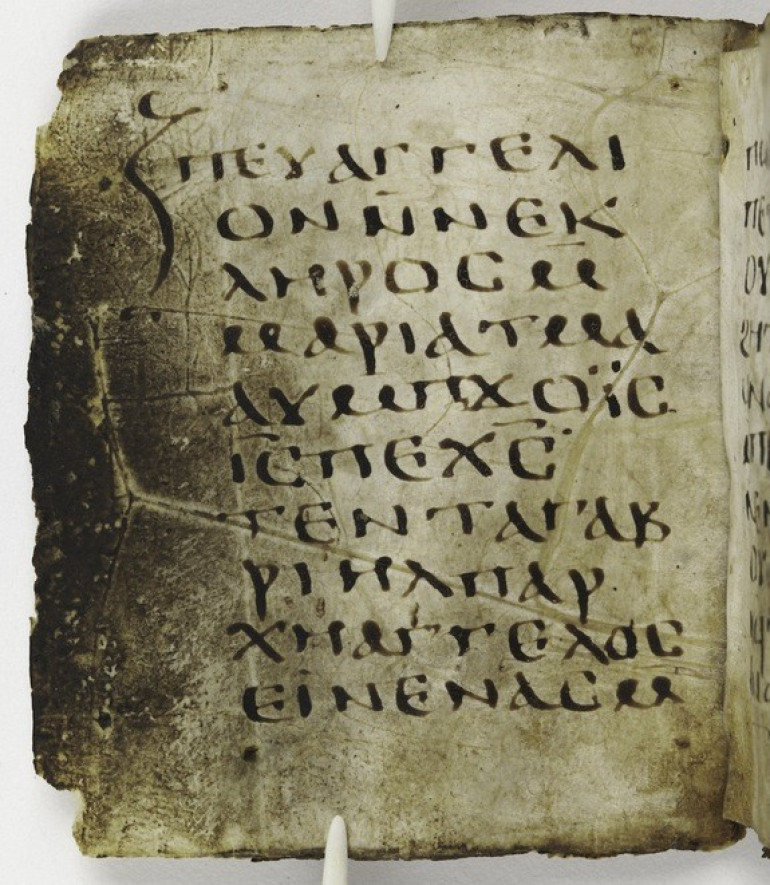 ⲠⲈⲨⲀⲄⲄⲈⲖⲒ
ⲞⲚⲚ̅ⲚⲈⲔ
ⲖⲎⲢⲞⲤⲘ̅
ⲘⲀⲢⲒⲀⲦⲘⲀ
ⲀⲨⲘⲠϪⲞⲒ̈Ⲥ
Ⲓ̅Ⲥ̅ⲠⲈⲬ̅Ⲥ̅
ⲦⲈⲚⲦⲀⲄⲀⲂ
ⲢⲒⲎⲖⲠⲀⲢ
ⲬⲎⲀⲄⲄⲈⲖⲞⲤ
ⲈⲒⲚⲈⲚⲀⲤⲘ